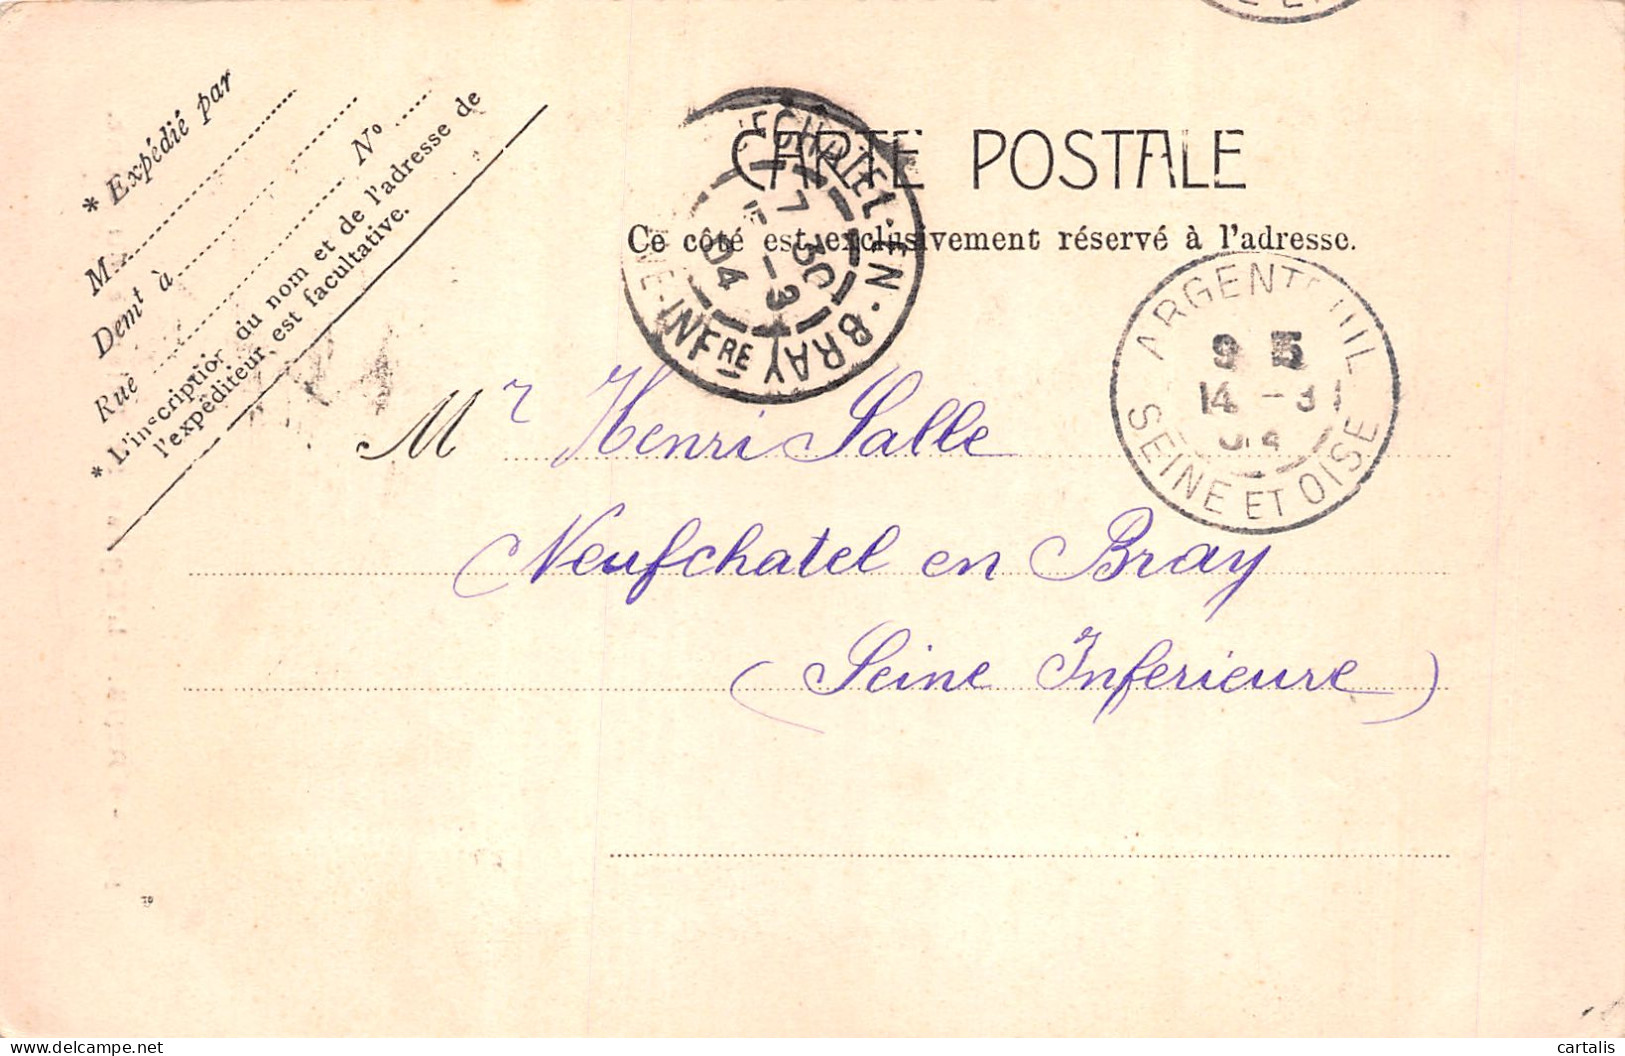 * Expédié par
M
Demt à
Rue Nº
* L'inscription du nom et de l'adresse de
l'expéditeur est facultative.
CARTE POSTALE
Ce côté est exclusivement réservé à l'adresse.
NFCHATEL-EN-BRAY
7 30
-3
04
NE-INFRE
ARGENTEUIL
9 5
14 -3
04
SEINE ET OISE
Mr Henri Salle
Neufchatel en Bray
(Seine Inferieure)
cartalis